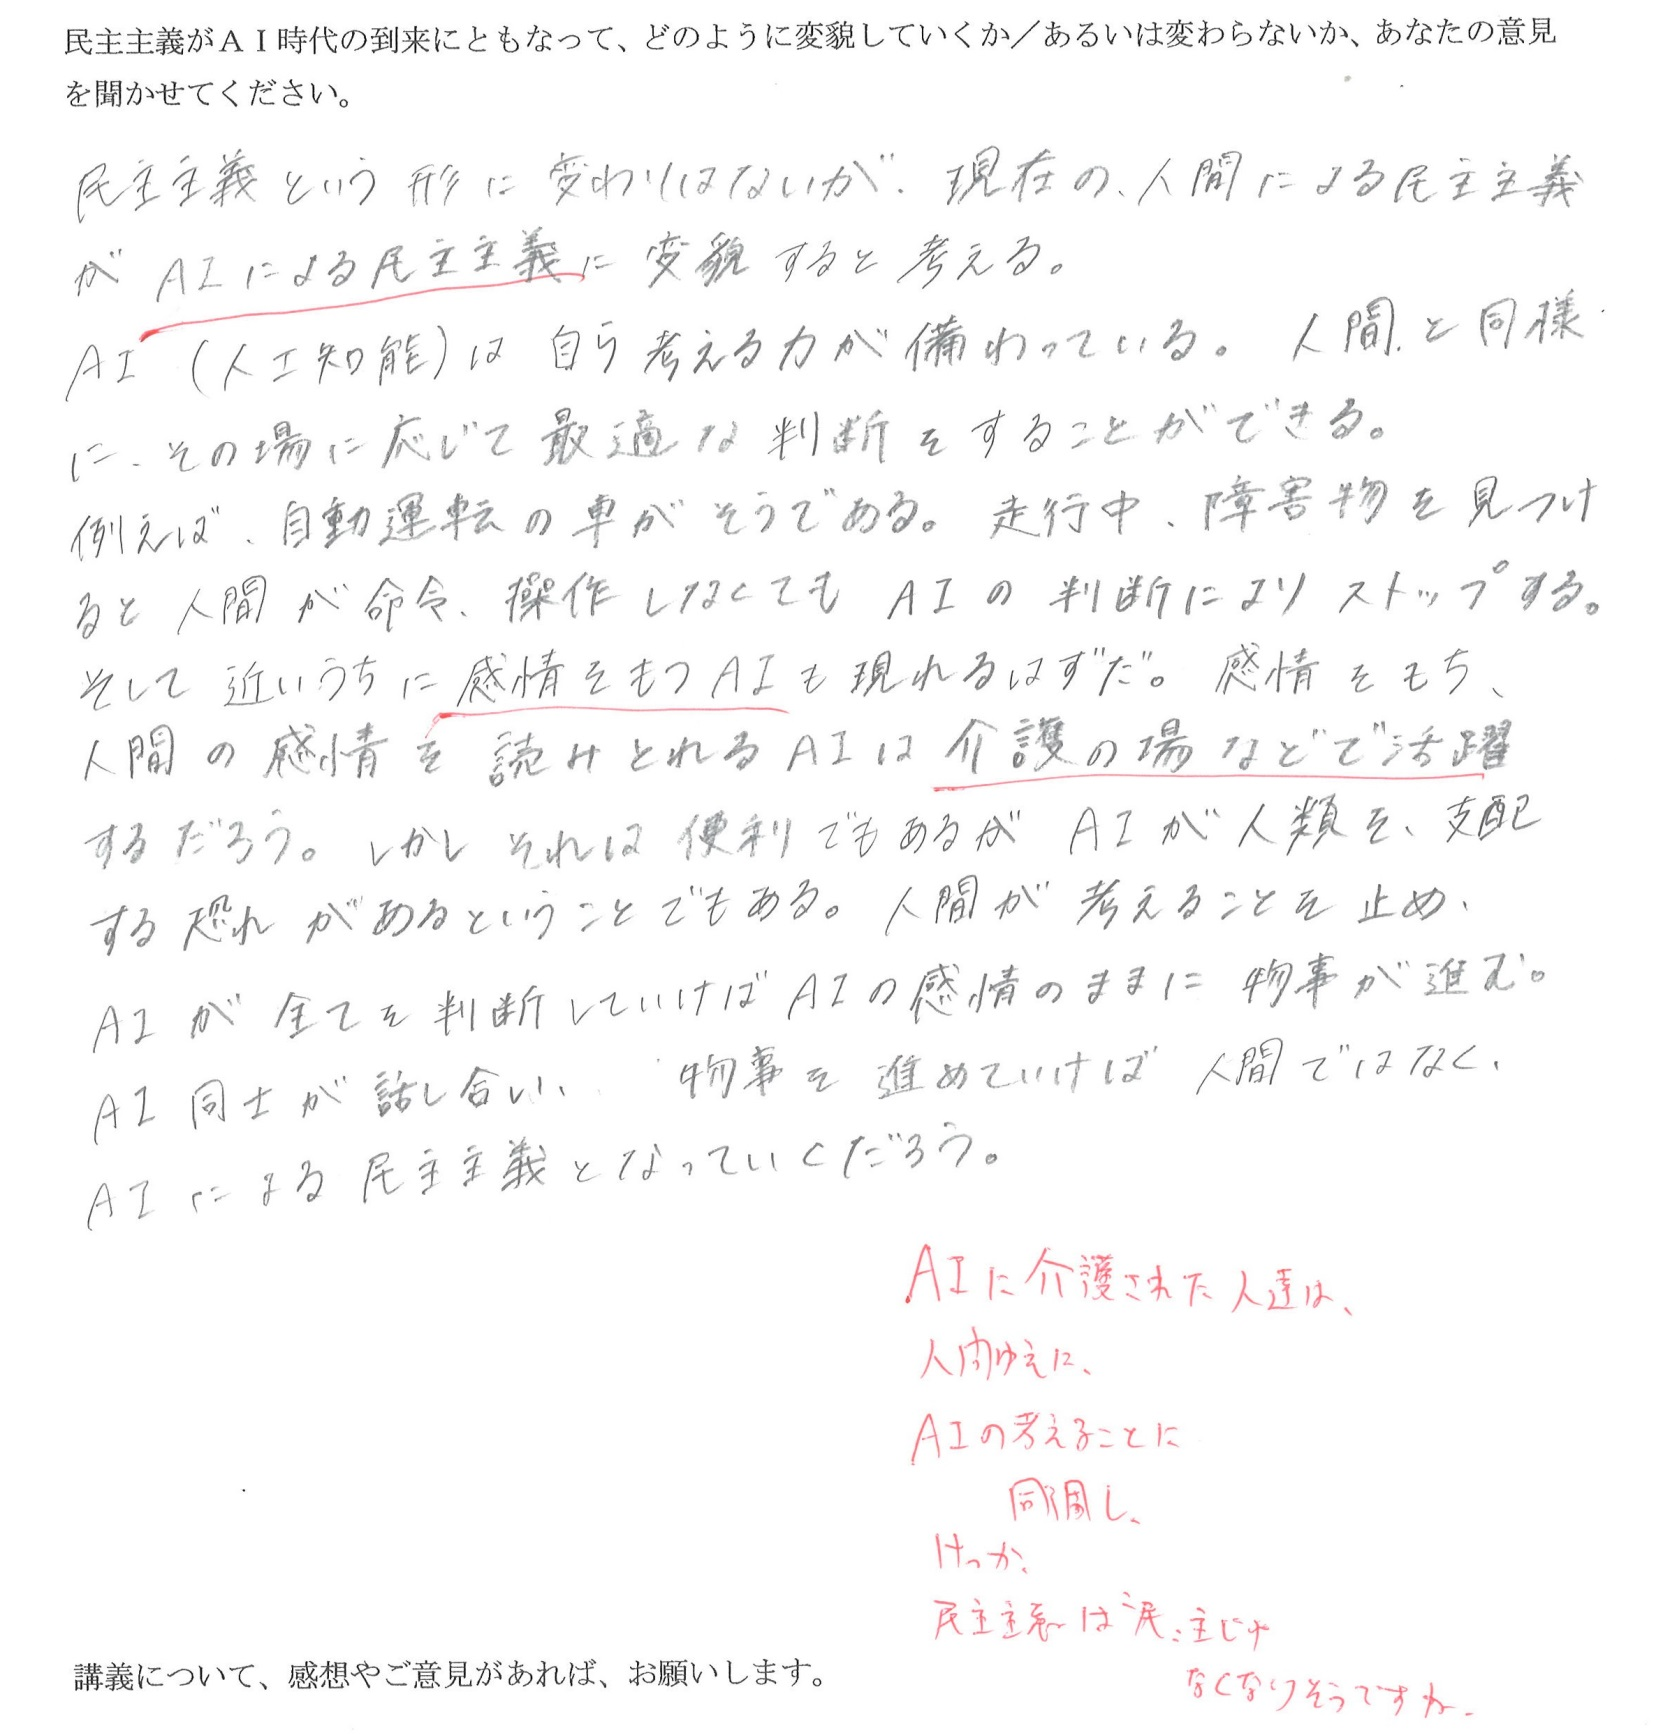 民主主義がＡＩ時代の到来にともなって、どのように変貌していくか／あるいは変わらないか、あなたの意見
を聞かせてください。
民主主義という形に変わりはないが、現在の、人間による民主主義
がAIによる民主主義に変貌すると考える。
AI（人工知能）は自ら考える力が備わっている。人間と同様
に、その場に応じて最適な判断をすることができる。
例えば、自動運転の車がそうである。走行中、障害物を見つけ
ると人間が命令、操作しなくてもAIの判断によりストップする。
そして近いうちに感情をもつAIも現れるはずだ。感情をもち、
人間の感情を読みとれるAIは介護の場などで活躍
するだろう。しかしそれは便利でもあるがAIが人類を、支配
する恐れがあるということでもある。人間が考えることを止め、
AIが全てを判断していけばAIの感情のままに物事が進む。
AI同士が話し合い、物事を進めていけば人間ではなく、
AIによる民主主義となっていくだろう。
AIに介護された人達は、
人間ゆえに、
AIの考えることに
同調し、
けっか、
民主主義は"民"主じゃ
なくなりそうですね.
講義について、感想やご意見があれば、お願いします。